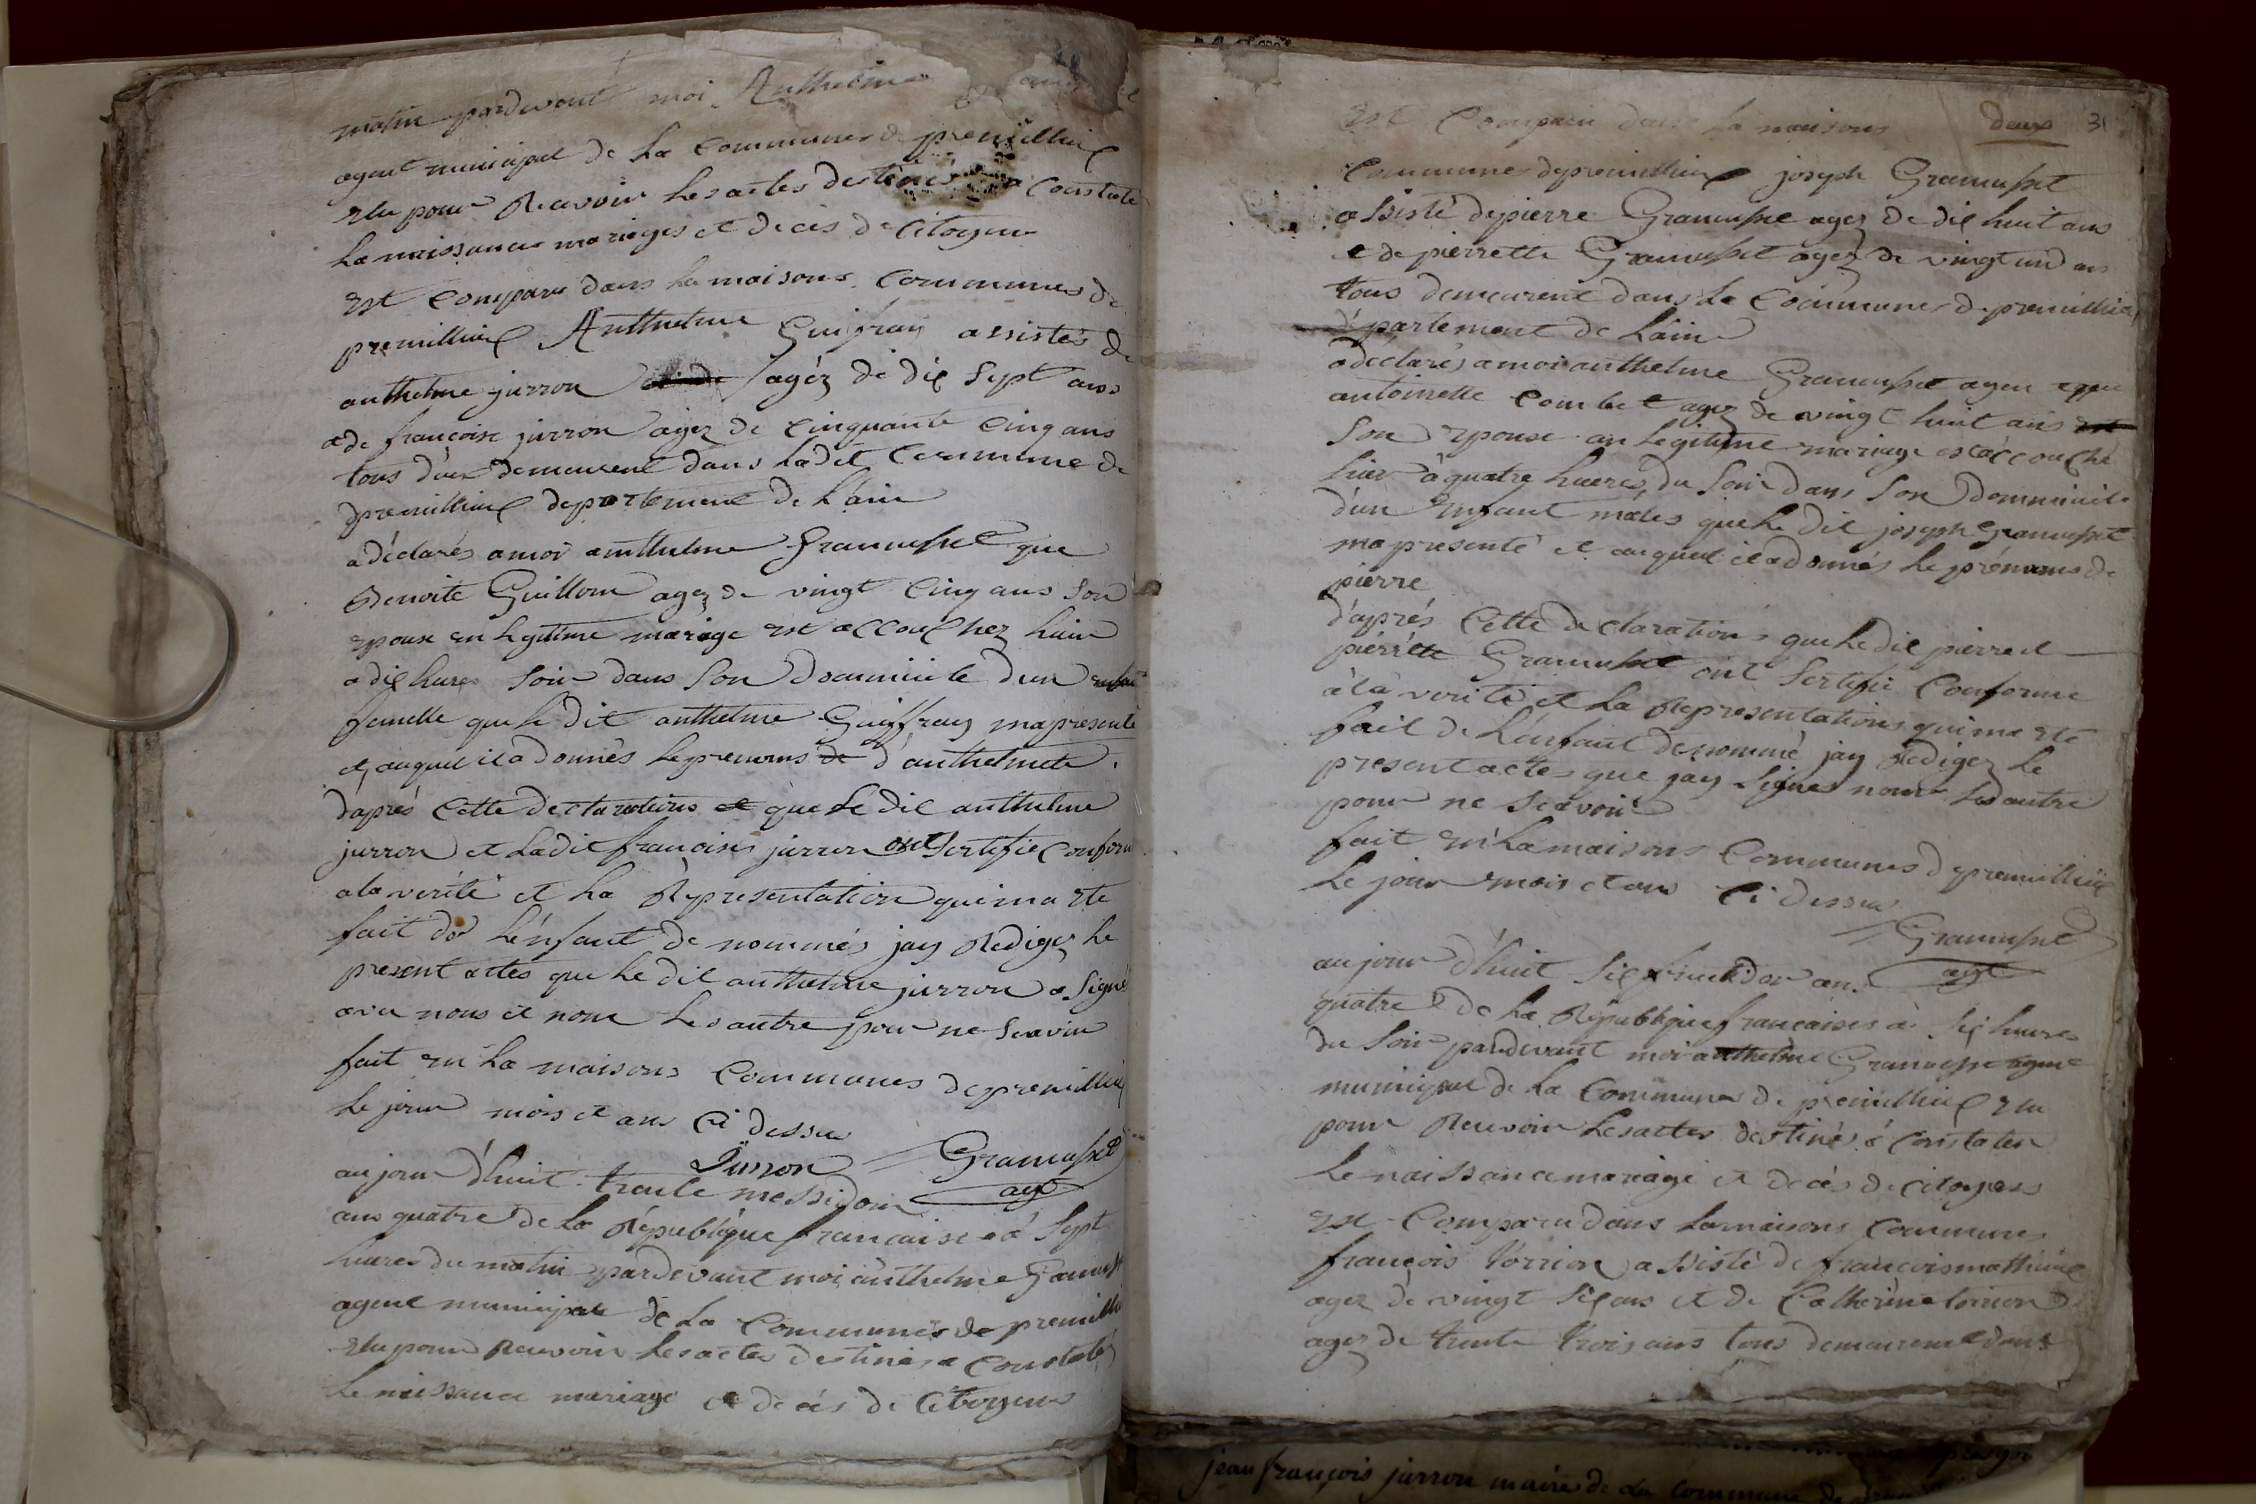 matin pardevant moi Anthelme
agent municipal de la Communes de premillieu
elu pour Recevoir les actes destinés a Constaté
la naissance mariages et décés de Citoyens
est Comparu dans la maisons Communes de
premillieu Anthelme Guiffray assistés de
anthelme jurron agéz de dix Sept ans
& de françoise jurron agéz de Cinquante Cinq ans
tous deux demeurent dans ladit Commune de
premillieu departement de l'ain
a déclarés a moi anthelme Gramusset que
Benoite Guillom agez de vingt Cinq ans Son
epouse en legitime mariage est accouchez hier
a dix hures Soir dans Son Doumicile d'un enfant
femelle que le dit anthelme Guiffray ma presenté
et auquel il a Donnés le prenoms de d'anthelmete.
d'aprés Cette declarations et que le dit anthelme
jurron et ladit françoises jurron ont Sertifie Conform
a la verité et la Representation qui ma ete
fait de l'énfant de nommés jay Rediger le
present actes que le dit anthelme jurron a Signé
avec nous et nom les autre pour ne Scavoir
fait en la maisons Communes de premillieu
le jour mois et ans Ci dessu
Jurron Gramusset
agt
aujour d'huit trante messidor
ans quatre de la Républéque francaise a Sept
hures du matin pardevant moi anthelme Gramusset
agent municipale de la Communes de premillieu
elu pour Recevoir les actes destinés a Constatés
le naissance mariage et decés de Citoyens
deux 31
est Comparu dans la maisons
Communes de premillieu joseph Gramusset
assisté de pierre Gramusset agez de dix huit ans
e de pierrette Gramusset agez de vingt un ans
tous demeurent dans la Commune de premillieu
département de l'ain
a déclarés a moi anthelme Gramusset agen que
antoinette Combet agez de vingt huit ans est
Son epouse an legitime mariage est accouché
hier à quatre hures du Soir dans Son Dommicile
d'un Enfant males que le dit joseph Gramusset
ma presenté et auquel il a donnés le prénoms de
pierre
d'aprés Cette declarations que le dit pierre et
pierrette Gramusset ont Sertifié Conforme
à la verité et la Representations qui ma eté
fait de l'énfant de nommé jay Rediger le
present actes que jay Signés nom les autre
pour ne scavoir
fait en la maisons Communes de premillieu
le jour mois et ans Ci dessu
Gramusset
agt
aujour d'huit Six fructidor an
quatre de la République francaises à Six hures
du Soir pardevant moi anthelme Gramusset agent
municipal de la Communes de premillieu elu
pour Recevoir les actes destinés à Constater
le naissance mariage et decés de Citoyens
est Comparu dans la maisons Communes
françois torrion assisté de francois mathieu
agez de vingt Six ans et de Catherine torrion
agez de trente trois ans tous demeurent dans
jean françois jurron maire de la Commune de